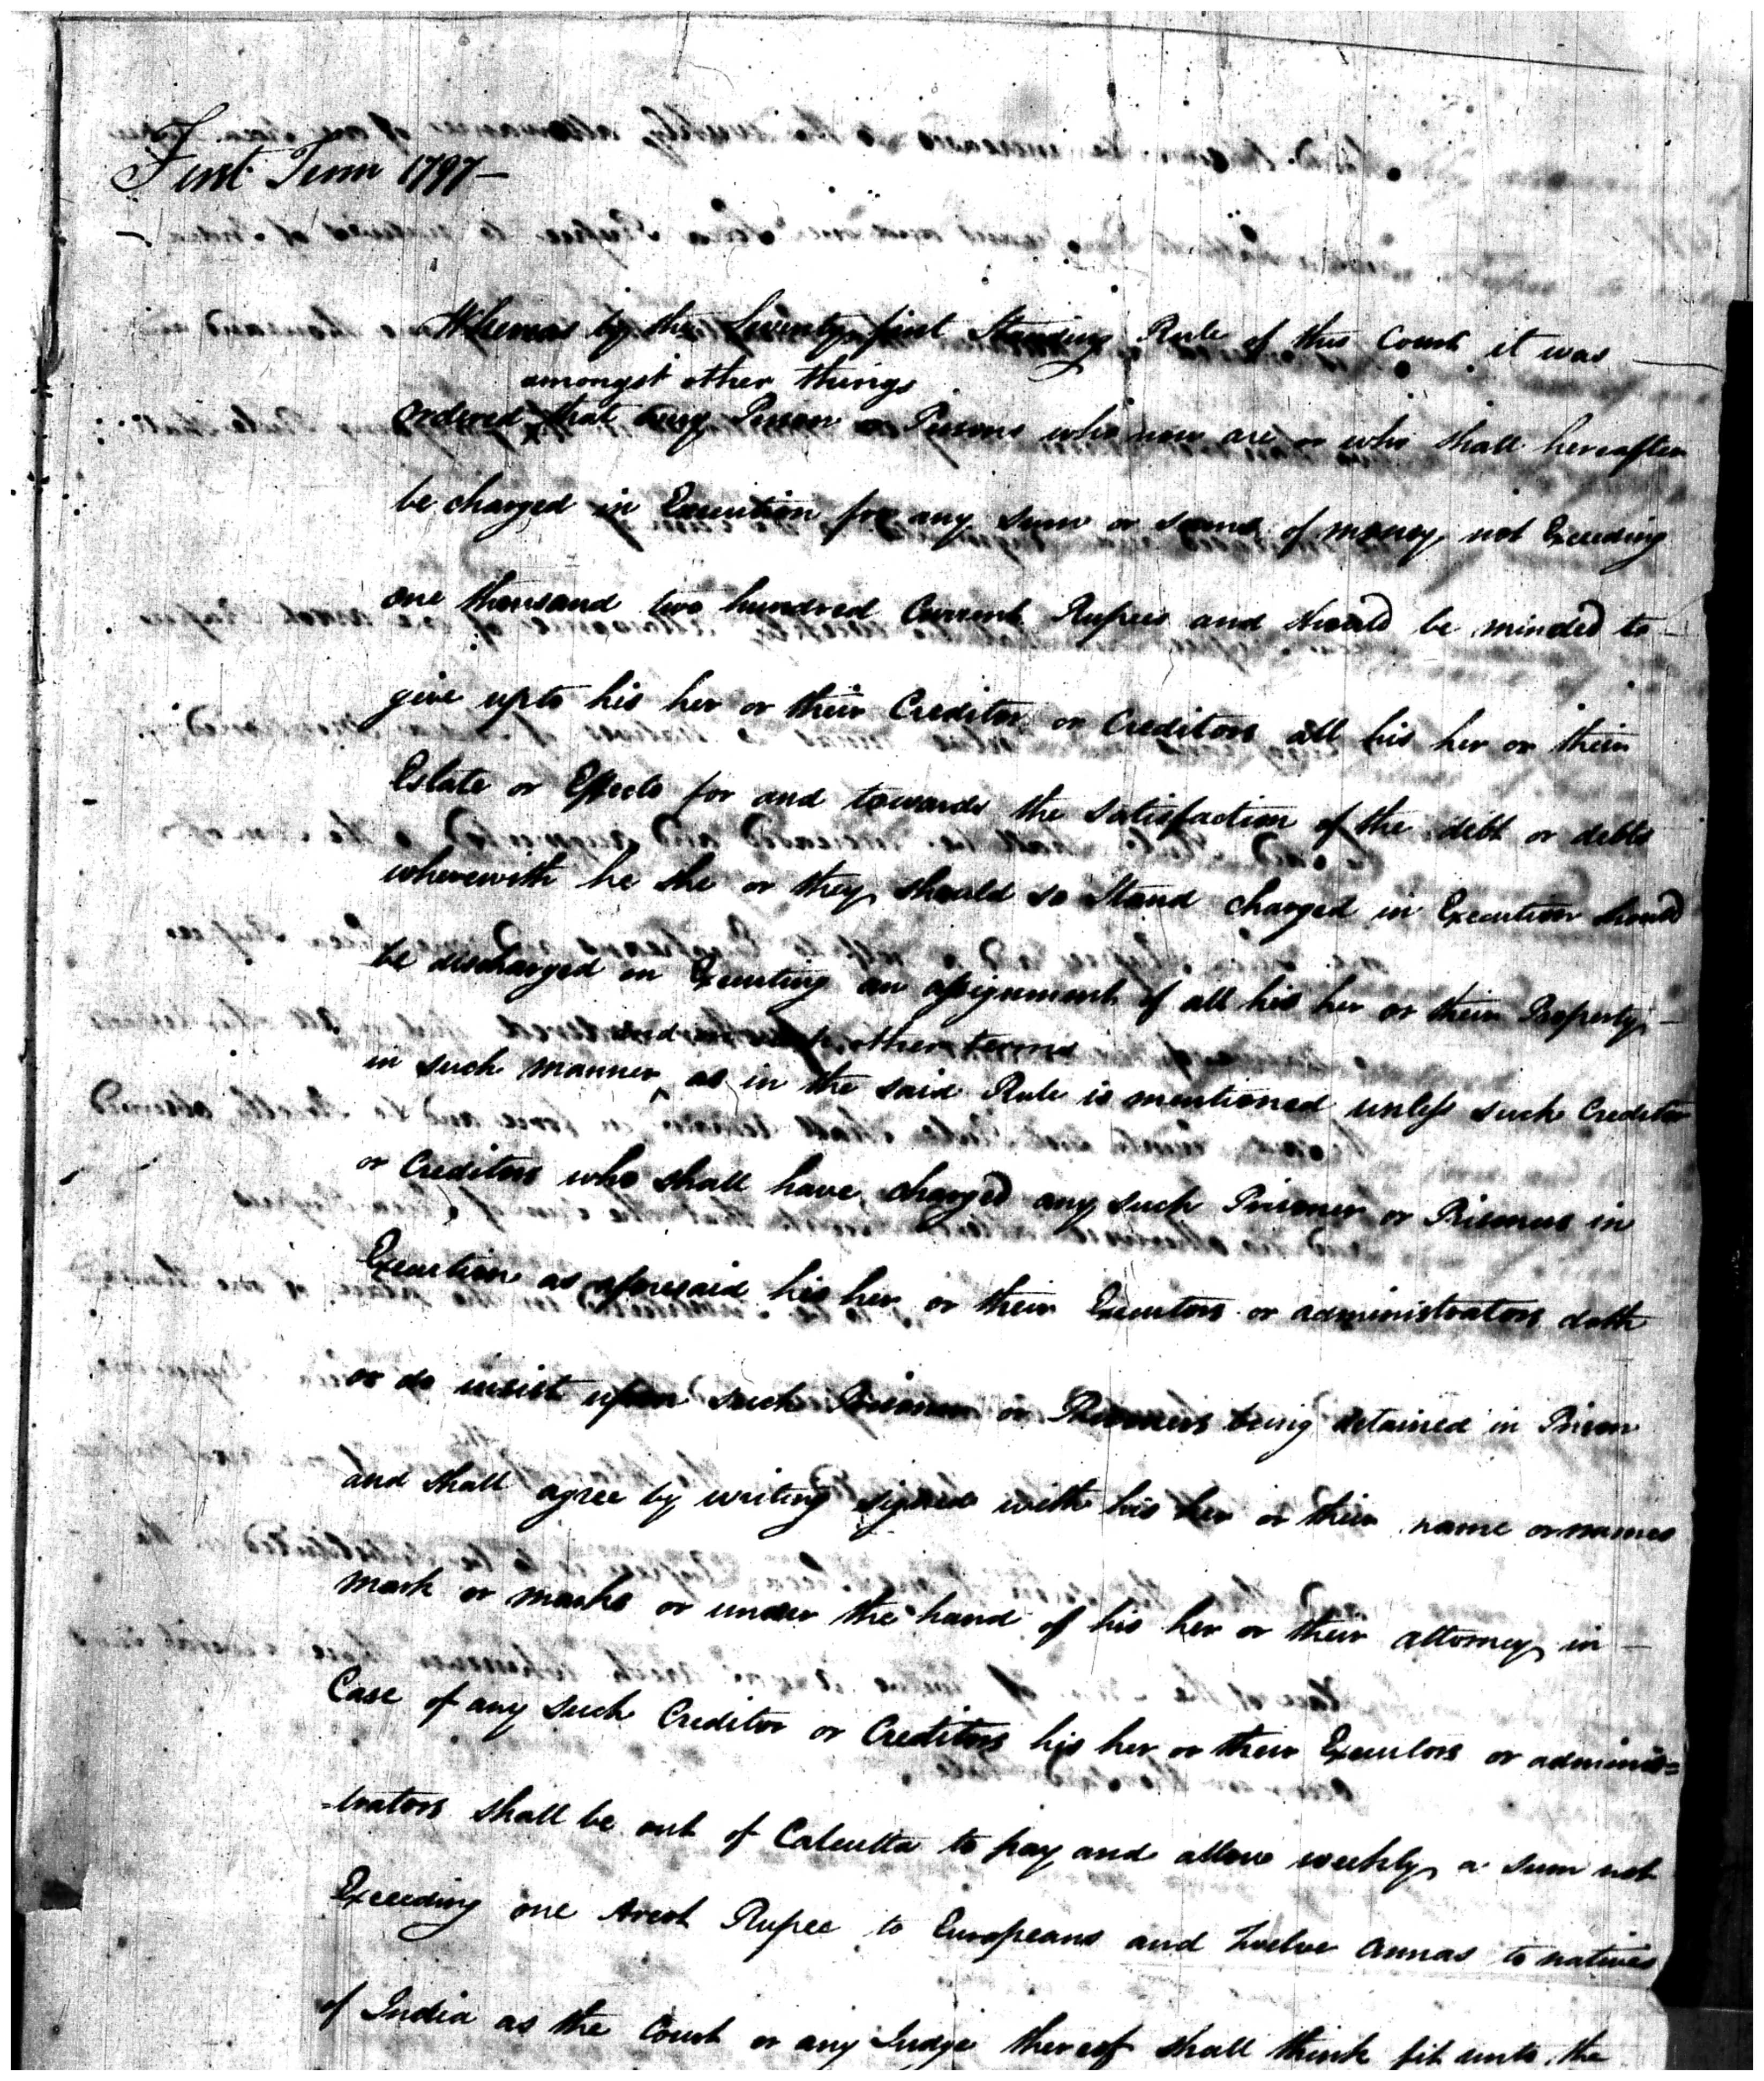 First Term 1797 —
Whereas by the Seventy first Standing Rule of this Court it was
amongst other things
ordered that any Person or Persons who now are or who shall hereafter
be charged in Execution for any sum or sums of money not Exceeding
one thousand two hundred Current Rupees and should be minded to
give up to his her or their Creditor or Creditors all his her or their
Estate or Effects for and towards the satisfaction of the debt or debts
wherewith he she or they should so Stand charged in Execution should
be discharged on Executing an assignment of all his her or their Property
and other terms
in such manner as in the said Rule is mentioned unless such Creditor
or Creditors who shall have charged any such Prisoner or Prisoners in
Execution as aforesaid his her or their Executors or administrators doth
or do insist upon such Prisoner or Prisoners being detained in Prison
and shall agree by writing signed with his her or their name or names
mark or marks or under the hand of his her or their attorney in
Case of any such Creditor or Creditors his her or their Executors or adminis=
=trators shall be out of Calcutta to pay and allow weekly a sum not
Exceeding one Arcot Rupee to Europeans and Twelve Annas to natives
of India as the Court or any Judge thereof shall think fit unto the